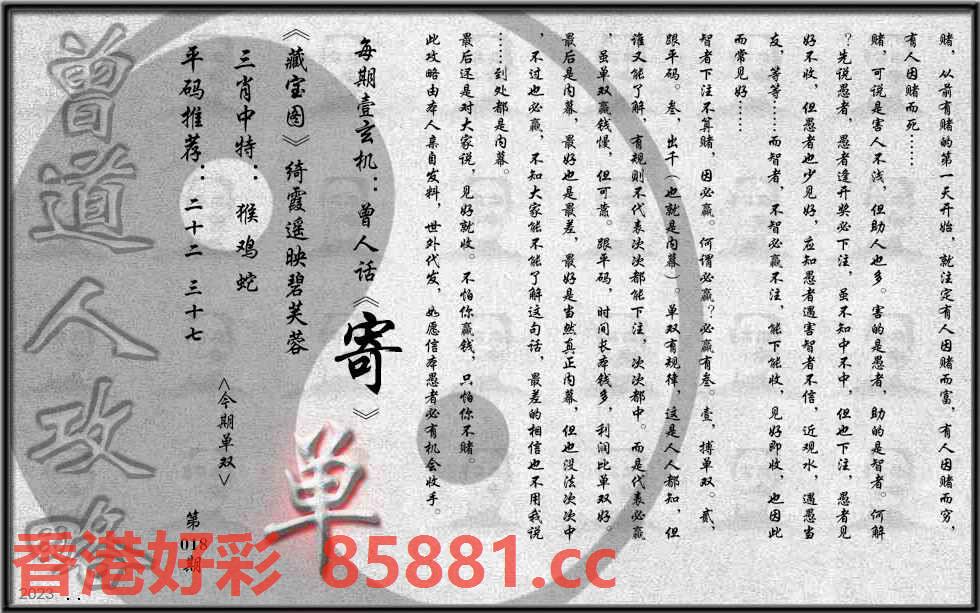 赌，从前有赌的第一天开始，就注定有人因赌而富，有人因赌而穷，
有人因赌而死……
赌，可说是害人不浅，但助人也多。害的是愚者，助的是智者。何解
？先说愚者，愚者逢开奖必下注，虽不知中不中，但也下注，愚者见
好不收，但愚者也少见好，应知愚者遇害智者不信，近观水，遇愚当
友，等等……而智者，不智必赢不注，能下能收，见好即收，也因此
而常见好……
智者下注不算赌，因必赢。何谓必赢？必赢有叁。壹，搏单双。贰，
跟平码。叁，出千（也就是内幕）。单双有规律，这是人人都知，但
谁又能了解，有规则不代表次次都能下注，次次都中。而是代表必赢
，虽单双赢钱慢，但可靠。跟平码，时间长本钱多，利润比单双好。
最后是内幕，最好也是最差，最好是当然真正内幕，但也没法次次中
，不过也必赢，不知大家能不能了解这句话，最差的相信也不用我说
……到处都是内幕。
最后还是对大家说，见好就收。不怕你赢钱，只怕你不赌。
此攻略由本人亲自发料，世外代发，如愿信本愚者必有机会收手。
每期壹玄机：曾人话《寄》
《藏宝图》绮霞遥映碧芙蓉
三肖中特：猴鸡蛇
平码推荐：二十二 三十七
<今期单双>
单
第
018
期
曾道人攻略
香港好彩 85881.cc
2023